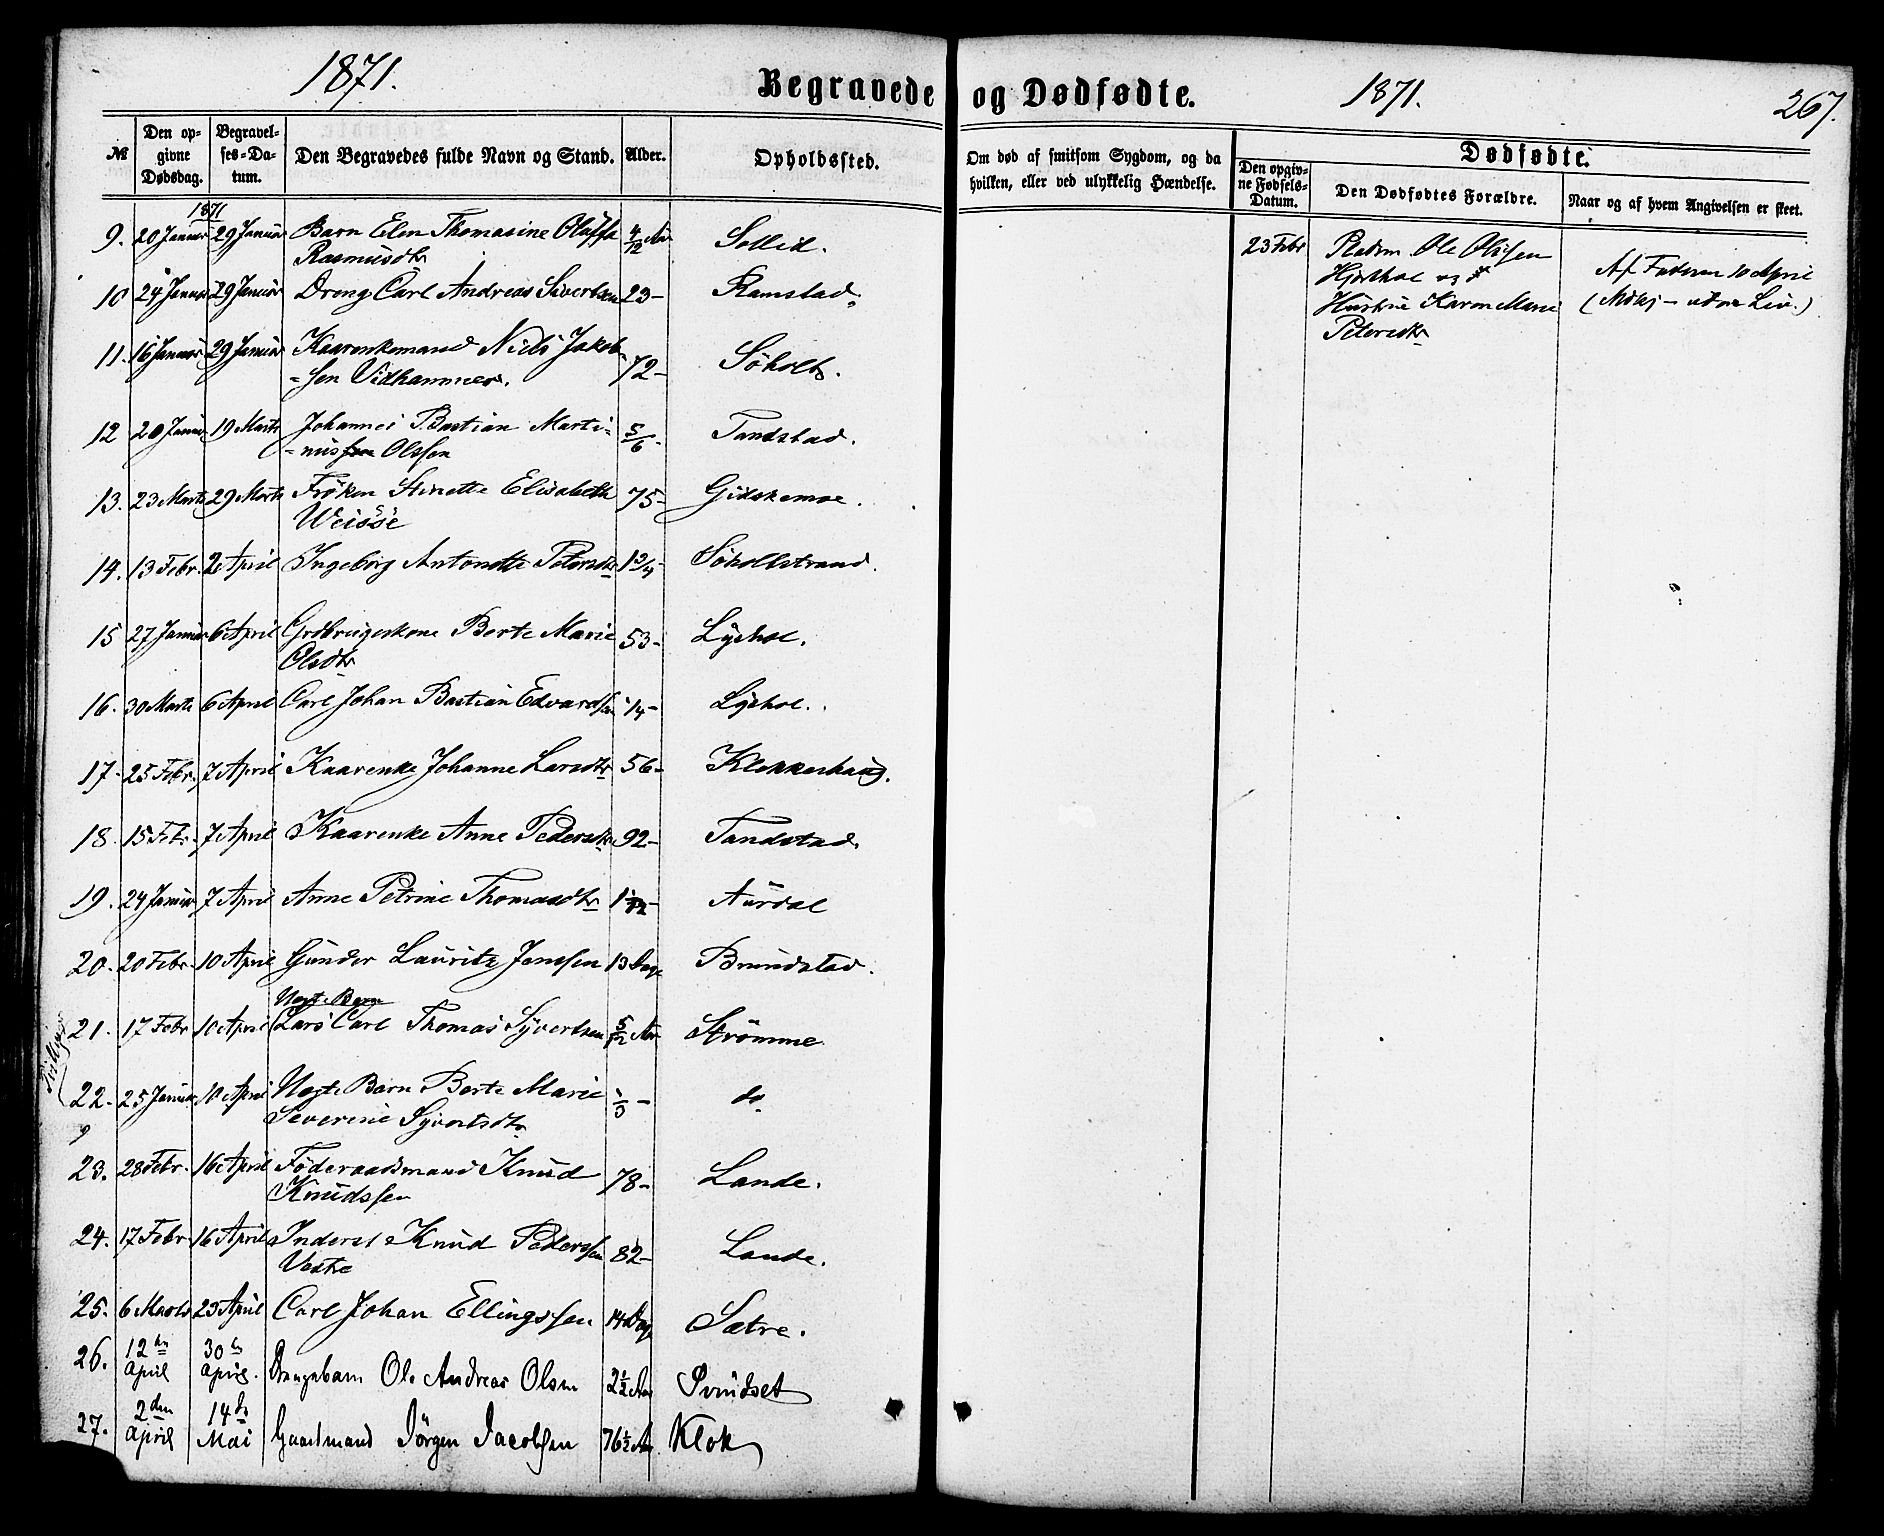 1871.
Begravede og Dødfødte.
1871.
267.
№
Den opgivne Dødsdag.
Begravelses-Datum.
Den Begravedes fulde Navn og Stand.
Alder.
Opholdssted.
Om død af smitsom Sygdom, og da hvilken, eller ved ulykkelig Hændelse.
Dødfødte.
Den opgivne Fødsels-Datum.
Den Dødfødtes Forældre.
Naar og af hvem Angivelsen er skeet.
1871
9. 20 Januar 29 Januar Barn Elen Thomasine Oluffa 4/12 Aar Sollid.
Rasmusdtr
10 24 Januar 29 Januar Dreng Carl Andreas Sivertsen 23- Ramstad.
11. 16 Januar 29 Januar Kaarenkemand Niels Jakob-
=sen Vidhammer. 72- Søholt.
12 20 Januar 19 Marts Johannes P. Bastian Marti-
=nus Olssen 5/6- Tandstad.
13. 23 Marts 29 Marts Frøken Stinette Elisabeth 75- Gidskemoe.
Weisse
14. 13 Febr. 2 April Ingeborg Antonette Petersdtr 1 3/4- Søholtstrand.
15 27 Januar 6 April Grdbrugerkone Berte Marie 53- Lyshol.
Olsdtr
16. 30 Marts 6 April Carl Johan Bastian Edvardsen 14- Lyshol.
17- 25 Febr. 7 April Kaarenke Johanne Larsdtr 56- Klokkerhaug.
18. 15 Febr 7 April Kaarenke Anne Pedersdtr 92- Tandstad.
19. 24 Januar 7 April Anne Petrine Thomasdtr Aurdal
20. 20 Febr. 10 April Gunder Lauritz Jenssen 13 Dage Brundstad.
Uegte Barn
21. 17 Febr 10 April Lars Carl Thomas Syvertsen 5/12 Aar Strømme
Tvillinger
22- 25 Januar 10 April Uegte Barn Berte Marie do
Severine Syvertsdtr
23. 28 Febr. 16 April Føderaadsmand Knud 78- Lande.
Knudssen
24. 17 Febr 16 April Inderst Knud Pederssen 82- Lande.
Vestre
25. 6 Marts 23 April Carl Johan Ellingssen 14 Dage Sætre.
26. 12te April 30te April. Drengebarn Ole Andreas Olsen 2 1/2 Aar Svindset
27. 2den April 14de Mai Gaardmand Jörgen Jacobsen 76 1/2 Aar Klok
23 Febr
Pladsm Ole Olssen
Hjorthol og
Hustrue Karen Marie
Petersdtr
Af Faderen 10 April
( - uden Liv.)